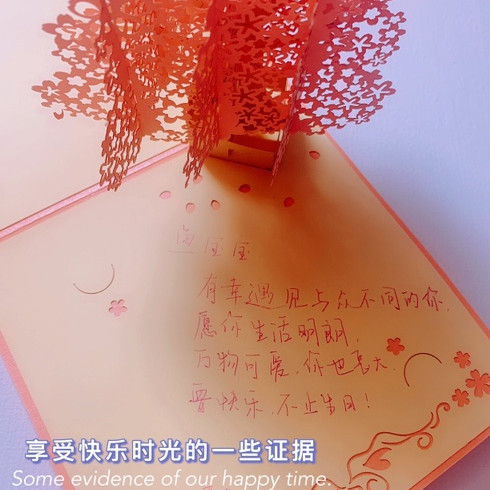 有幸遇见与众不同的你.
愿你生活明朗,
万物可爱.你也长大.
快乐,不止生日!
享受快乐时光的一些证据
Some evidence of our happy time.